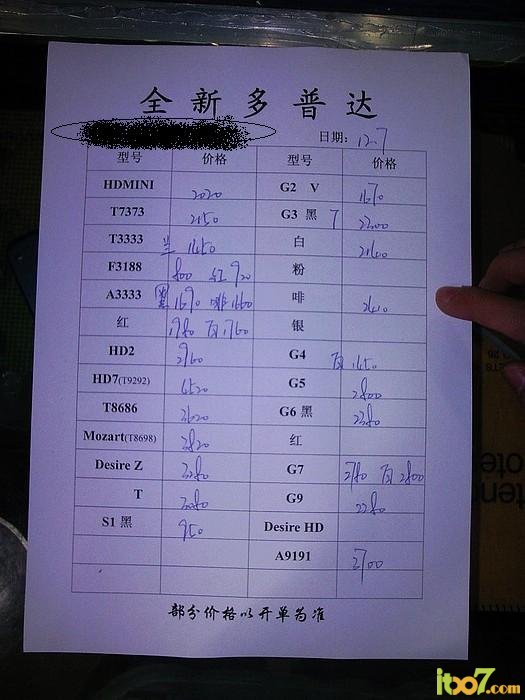 全新多普达
日期: 12.7
型号 价格 型号 价格
HDMINI 2020 G2 V 1670
T7373 2150 G3 黑 2200
T3333 1450 白 2160
F3188 800 红 920 粉
A3333 黑 1690 啡 1660 啡 2610
红 1780 白 1760 银
HD2 2960 G4 白 1650
HD7(T9292) 4520 G5 2800
T8686 3620 G6 黑 2380
Mozart(T8698) 3820 红
Desire Z 3280 G7 2780 白 2800
T 3080 G9 2280
S1 黑 950 Desire HD
A9191 3700
部分价格以开单为准
itbo7.com